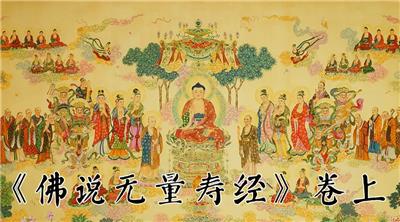 《佛说无量寿经》卷上